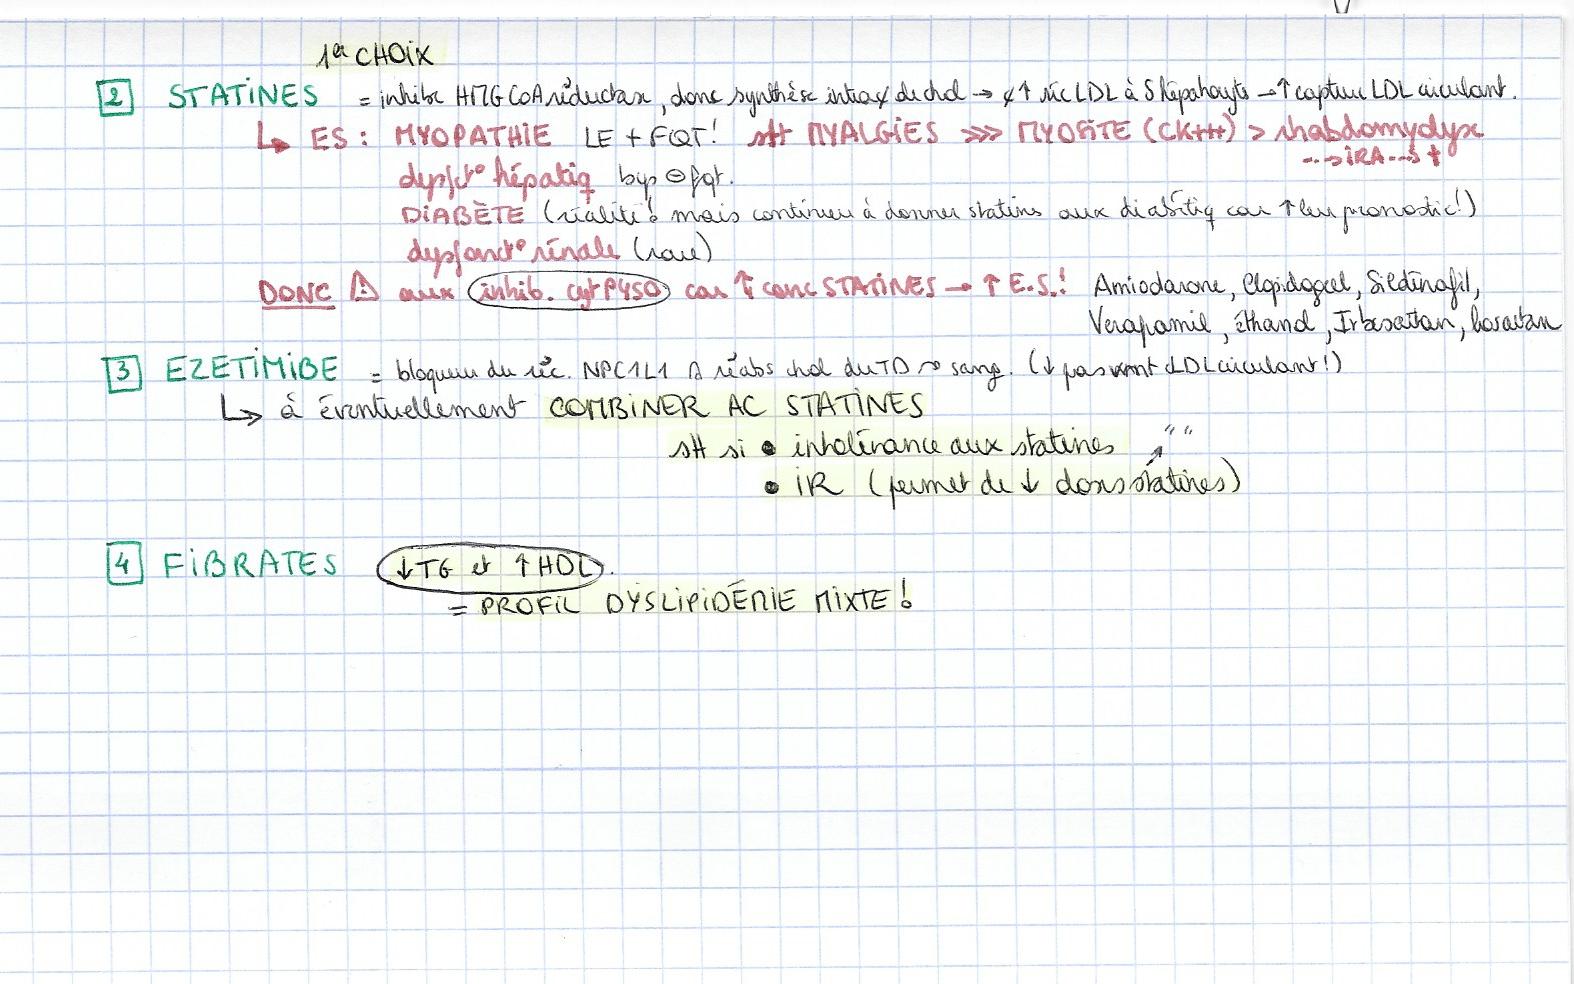 1er CHOIX
2 STATINES = inhibe HMG CoA réductase, donc synthèse intra¢ de chol → ¢ ↑ réc LDL à S hépatocyte → ↑ capture LDL circulant.
↳ ES : MYOPATHIE LE + FQT ! stt MYALGIES >>> MYOSITE (CK+++) > rhabdomyolyse
--→ IRA --→ †
dysfct° hépatiq bcp ⊖ fqt.
DIABÈTE (réalité ! mais continuer à donner statines aux diabétiq car ↑ leur pronostic !)
dysfonct° rénale (rare)
DONC ⚠ aux inhib. cyt P450 car ↑ conc STATINES → ↑ E.S. ! Amiodarone, Clopidogrel, Sildénafil,
Verapamil, éthanol, Irbesartan, losartan
3 EZETIMIBE = bloqueur du réc. NPC1L1 réabs chol du TD ~> sang. (↓ pas vrmt LDL circulant !)
↳ à éventuellement COMBINER AC STATINES
stt si • intolérance aux statines ↗ " "
• IR (permet de ↓ doses statines)
4 FIBRATES ↓ TG et ↑ HDL.
= PROFIL DYSLIPIDÉMIE MIXTE !